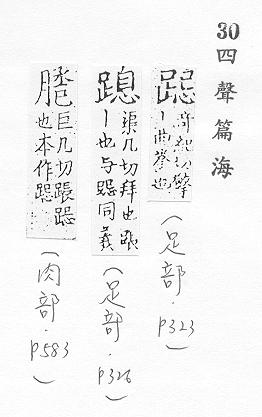 30
四聲篇海
跽
奇紀切擎
｜曲拳也
（足部．
P323）
渠几切拜也
｜也與跽同義
（足部．
P326）
巨几切 跽
也本作跽
（肉部．
P583）